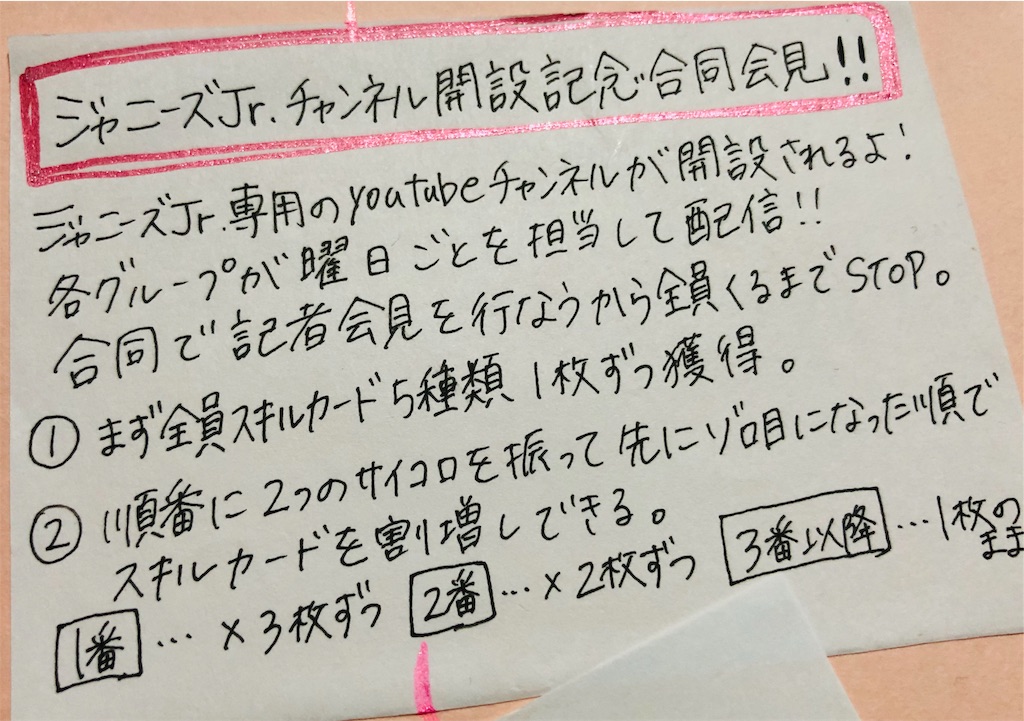 ジャニーズJr.チャンネル開設記念合同会見!!
ジャニーズJr.専用のyoutubeチャンネルが開設されるよ!
各グループが曜日ごとを担当して配信!!
合同で記者会見を行なうから全員くるまでSTOP。
① まず全員スキルカード5種類1枚ずつ獲得。
② 順番に2つのサイコロを振って先にゾロ目になった順で
スキルカードを割り増しできる。
1番 … ×3枚ずつ 2番 … ×2枚ずつ 3番以降 … 1枚のまま